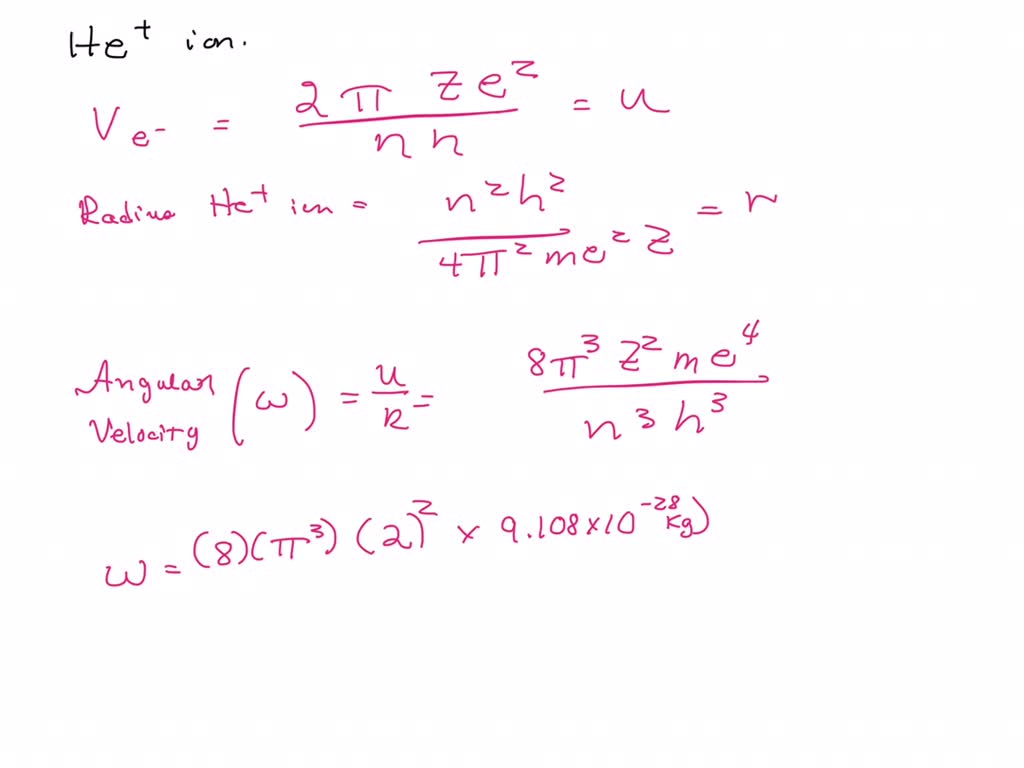 He⁺ ion.
V e⁻ = 2 π Z e² / n h = u
Radius He⁺ ion = n² h² / 4π² m e² Z = r
Angular Velocity (ω) = u / r = 8π³ Z² m e⁴ / n³ h³
ω = (8)(π³) (2)² × 9.108×10⁻²⁸ kg)